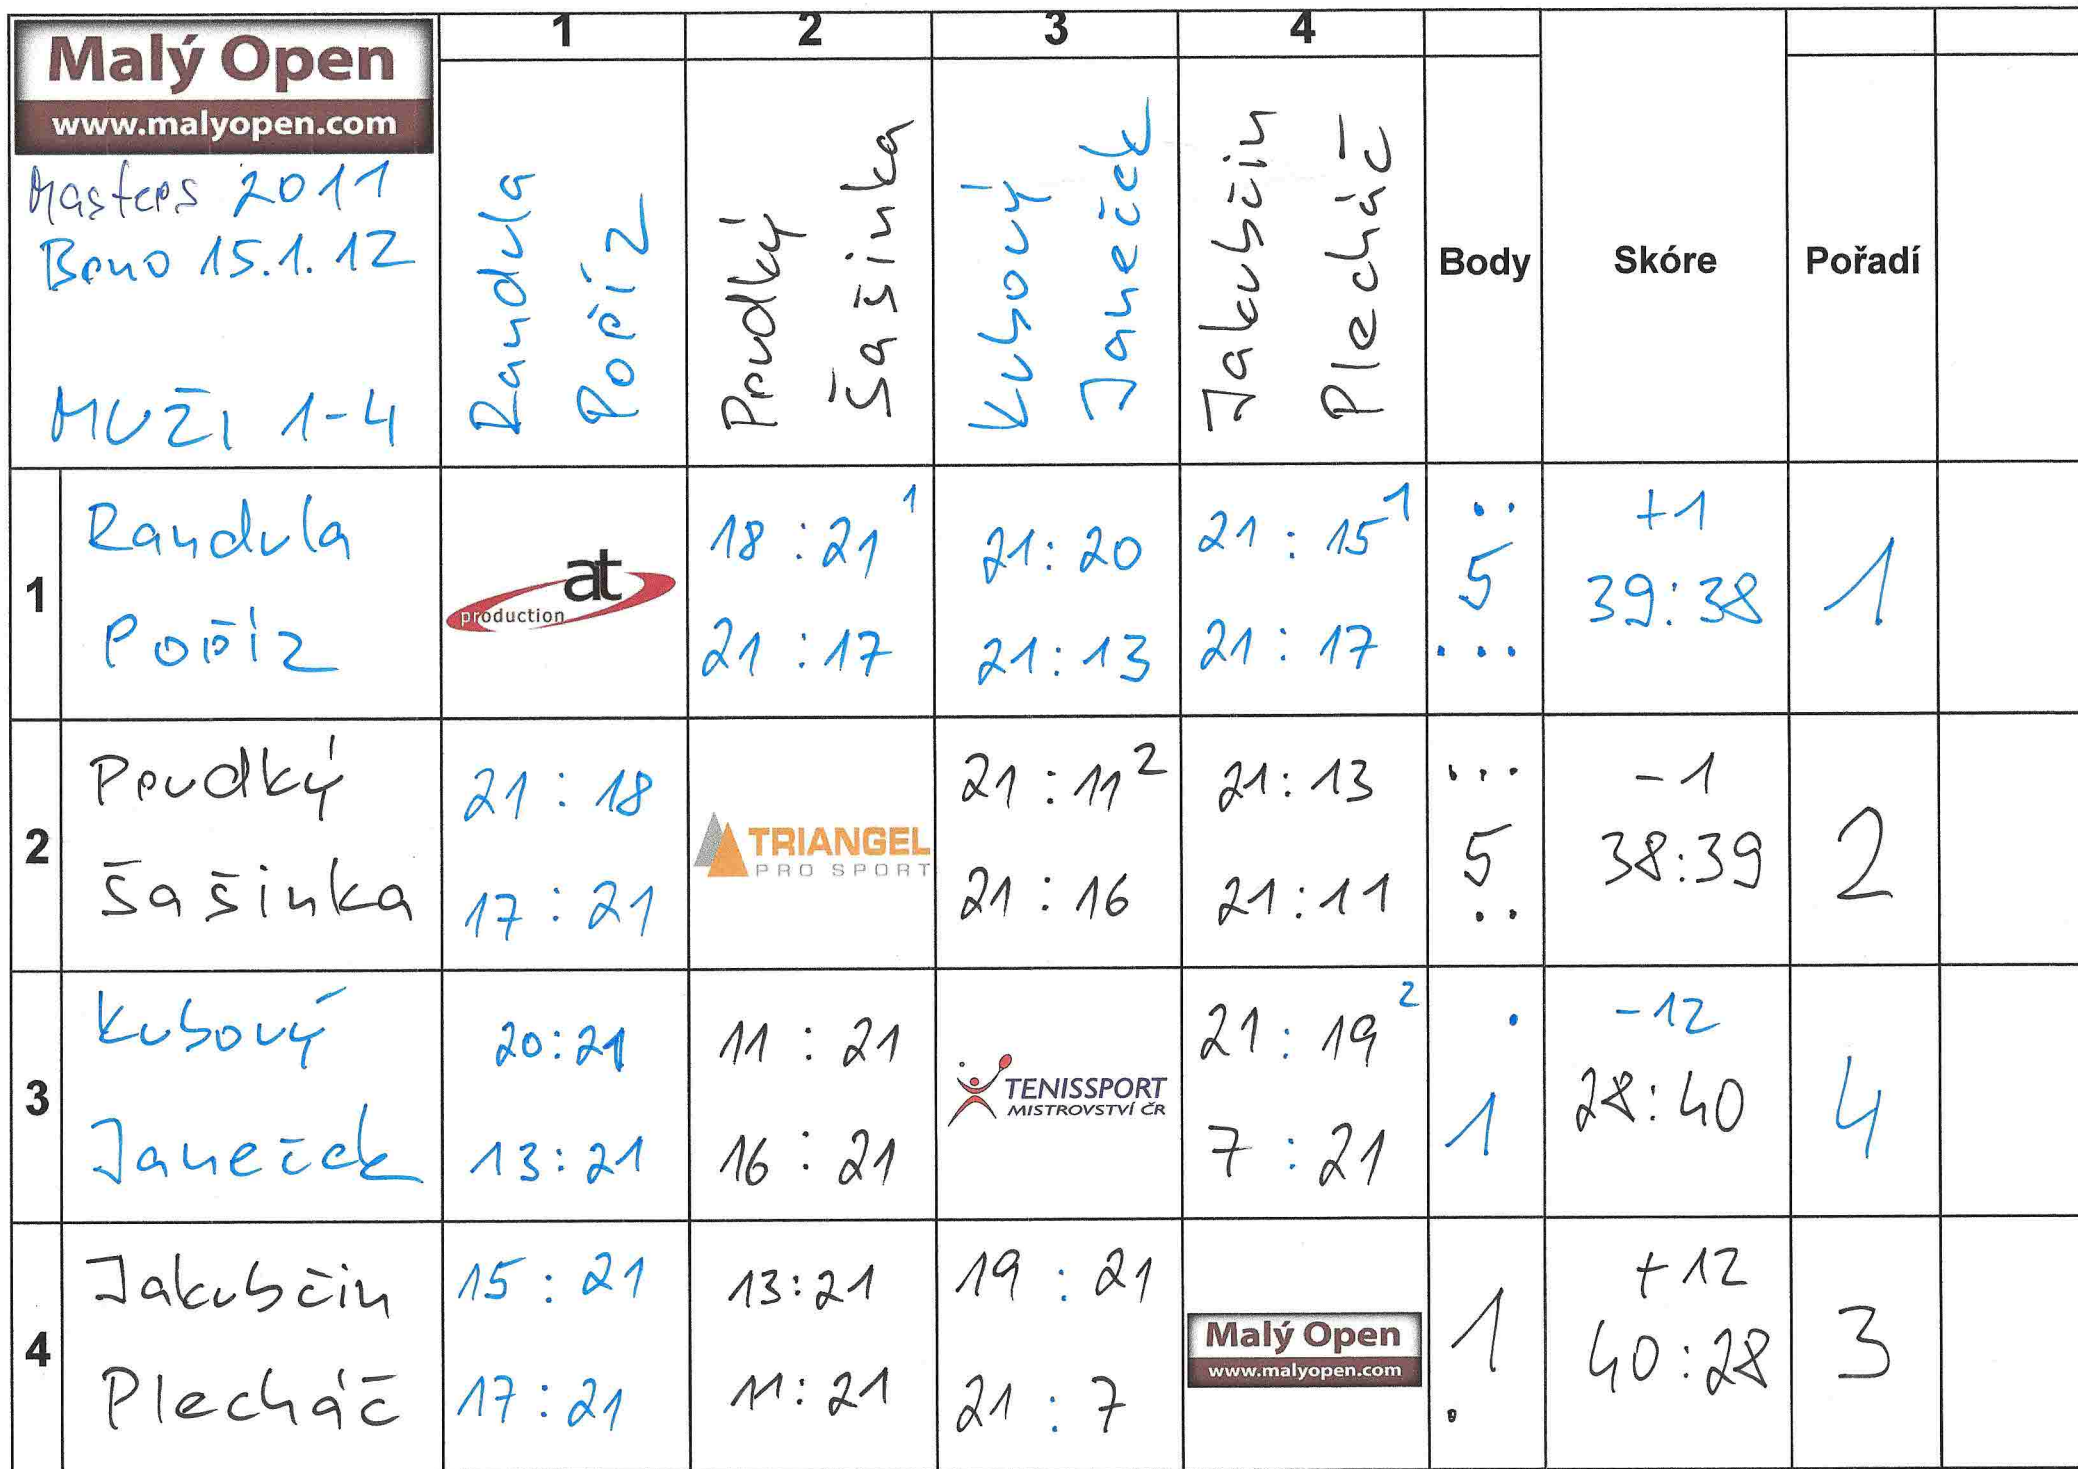 1 2 3 4
Malý Open
www.malyopen.com
Masters 2011
Brno 15.1.12
MUŽI 1-4
Randula
Pořiz
Prudký
Šašinka
Kubový
Janeček
Jakubčin
Plecháč
Body
Skóre
Pořadí
1
Randula
Pořiz
at
production
18:21 1
21:17
21:20
21:13
21:15 1
21:17
5
+1
39:38
1
2
Prudký
Šašinka
21:18
17:21
TRIANGEL
PRO SPORT
21:11 2
21:16
21:13
21:11
5
-1
38:39
2
3
Kubový
Janeček
20:21
13:21
11:21
16:21
TENISSPORT
MISTROVSTVÍ ČR
21:19 2
7:21
1
-12
28:40
4
4
Jakubčin
Plecháč
15:21
17:21
13:21
11:21
19:21
21:7
Malý Open
www.malyopen.com
1
+12
40:28
3